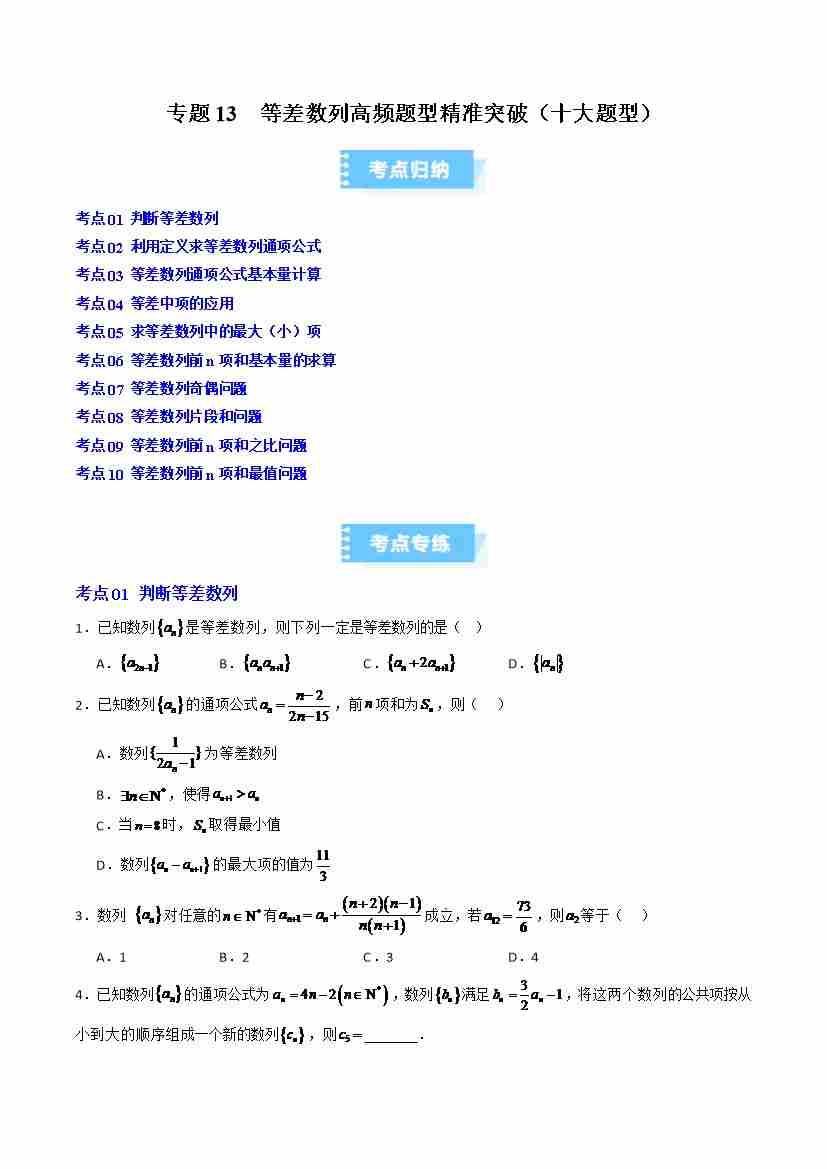 专题13 等差数列高频题型精准突破（十大题型）
考点归纳
考点01 判断等差数列
考点02 利用定义求等差数列通项公式
考点03 等差数列通项公式基本量计算
考点04 等差中项的应用
考点05 求等差数列中的最大（小）项
考点06 等差数列前n项和基本量的求算
考点07 等差数列奇偶问题
考点08 等差数列片段和问题
考点09 等差数列前n项和之比问题
考点10 等差数列前n项和最值问题
考点专练
考点01 判断等差数列
1．已知数列{aₙ}是等差数列，则下列一定是等差数列的是（ ）
A．{a₂ₙ₋₁} B．{aₙaₙ₊₁} C．{aₙ+2aₙ₊₁} D．{|aₙ|}
2．已知数列{aₙ}的通项公式aₙ=(n−2)/(2n−15)，前n项和为Sₙ，则（ ）
A．数列{1/(2aₙ−1)}为等差数列
B．∃n∈N*，使得aₙ₊₁>aₙ
C．当n=8时，Sₙ取得最小值
D．数列{aₙ−aₙ₊₁}的最大项的值为11/3
3．数列 {aₙ}对任意的n∈N*有aₙ₊₁=aₙ+(n+2)(n−1)/(n(n+1))成立，若a₁₂=73/6，则a₂等于（ ）
A．1 B．2 C．3 D．4
4．已知数列{aₙ}的通项公式为aₙ=4n−2(n∈N*)，数列{bₙ}满足bₙ=3/2aₙ−1，将这两个数列的公共项按从
小到大的顺序组成一个新的数列{cₙ}，则c₅=______．